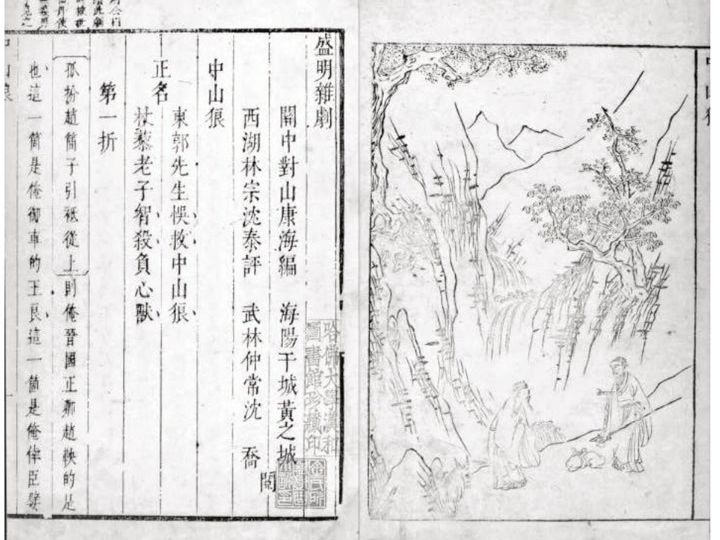 中山狼
盛明雜劇
關中對山康海編 海陽干城黃之城
西湖林宗沈泰評 武林仲常沈 喬
閱
哈佛大學漢和
圖書館珍藏印
中山狼
正名
東郭先生悞救中山狼
杖藜老子智殺負心獸
第一折
孤扮趙簡子引祗從上 則俺晉國正卿趙鞅的是
也這一箇是俺御車的王良這一箇是俺倖臣嬖
中山狼